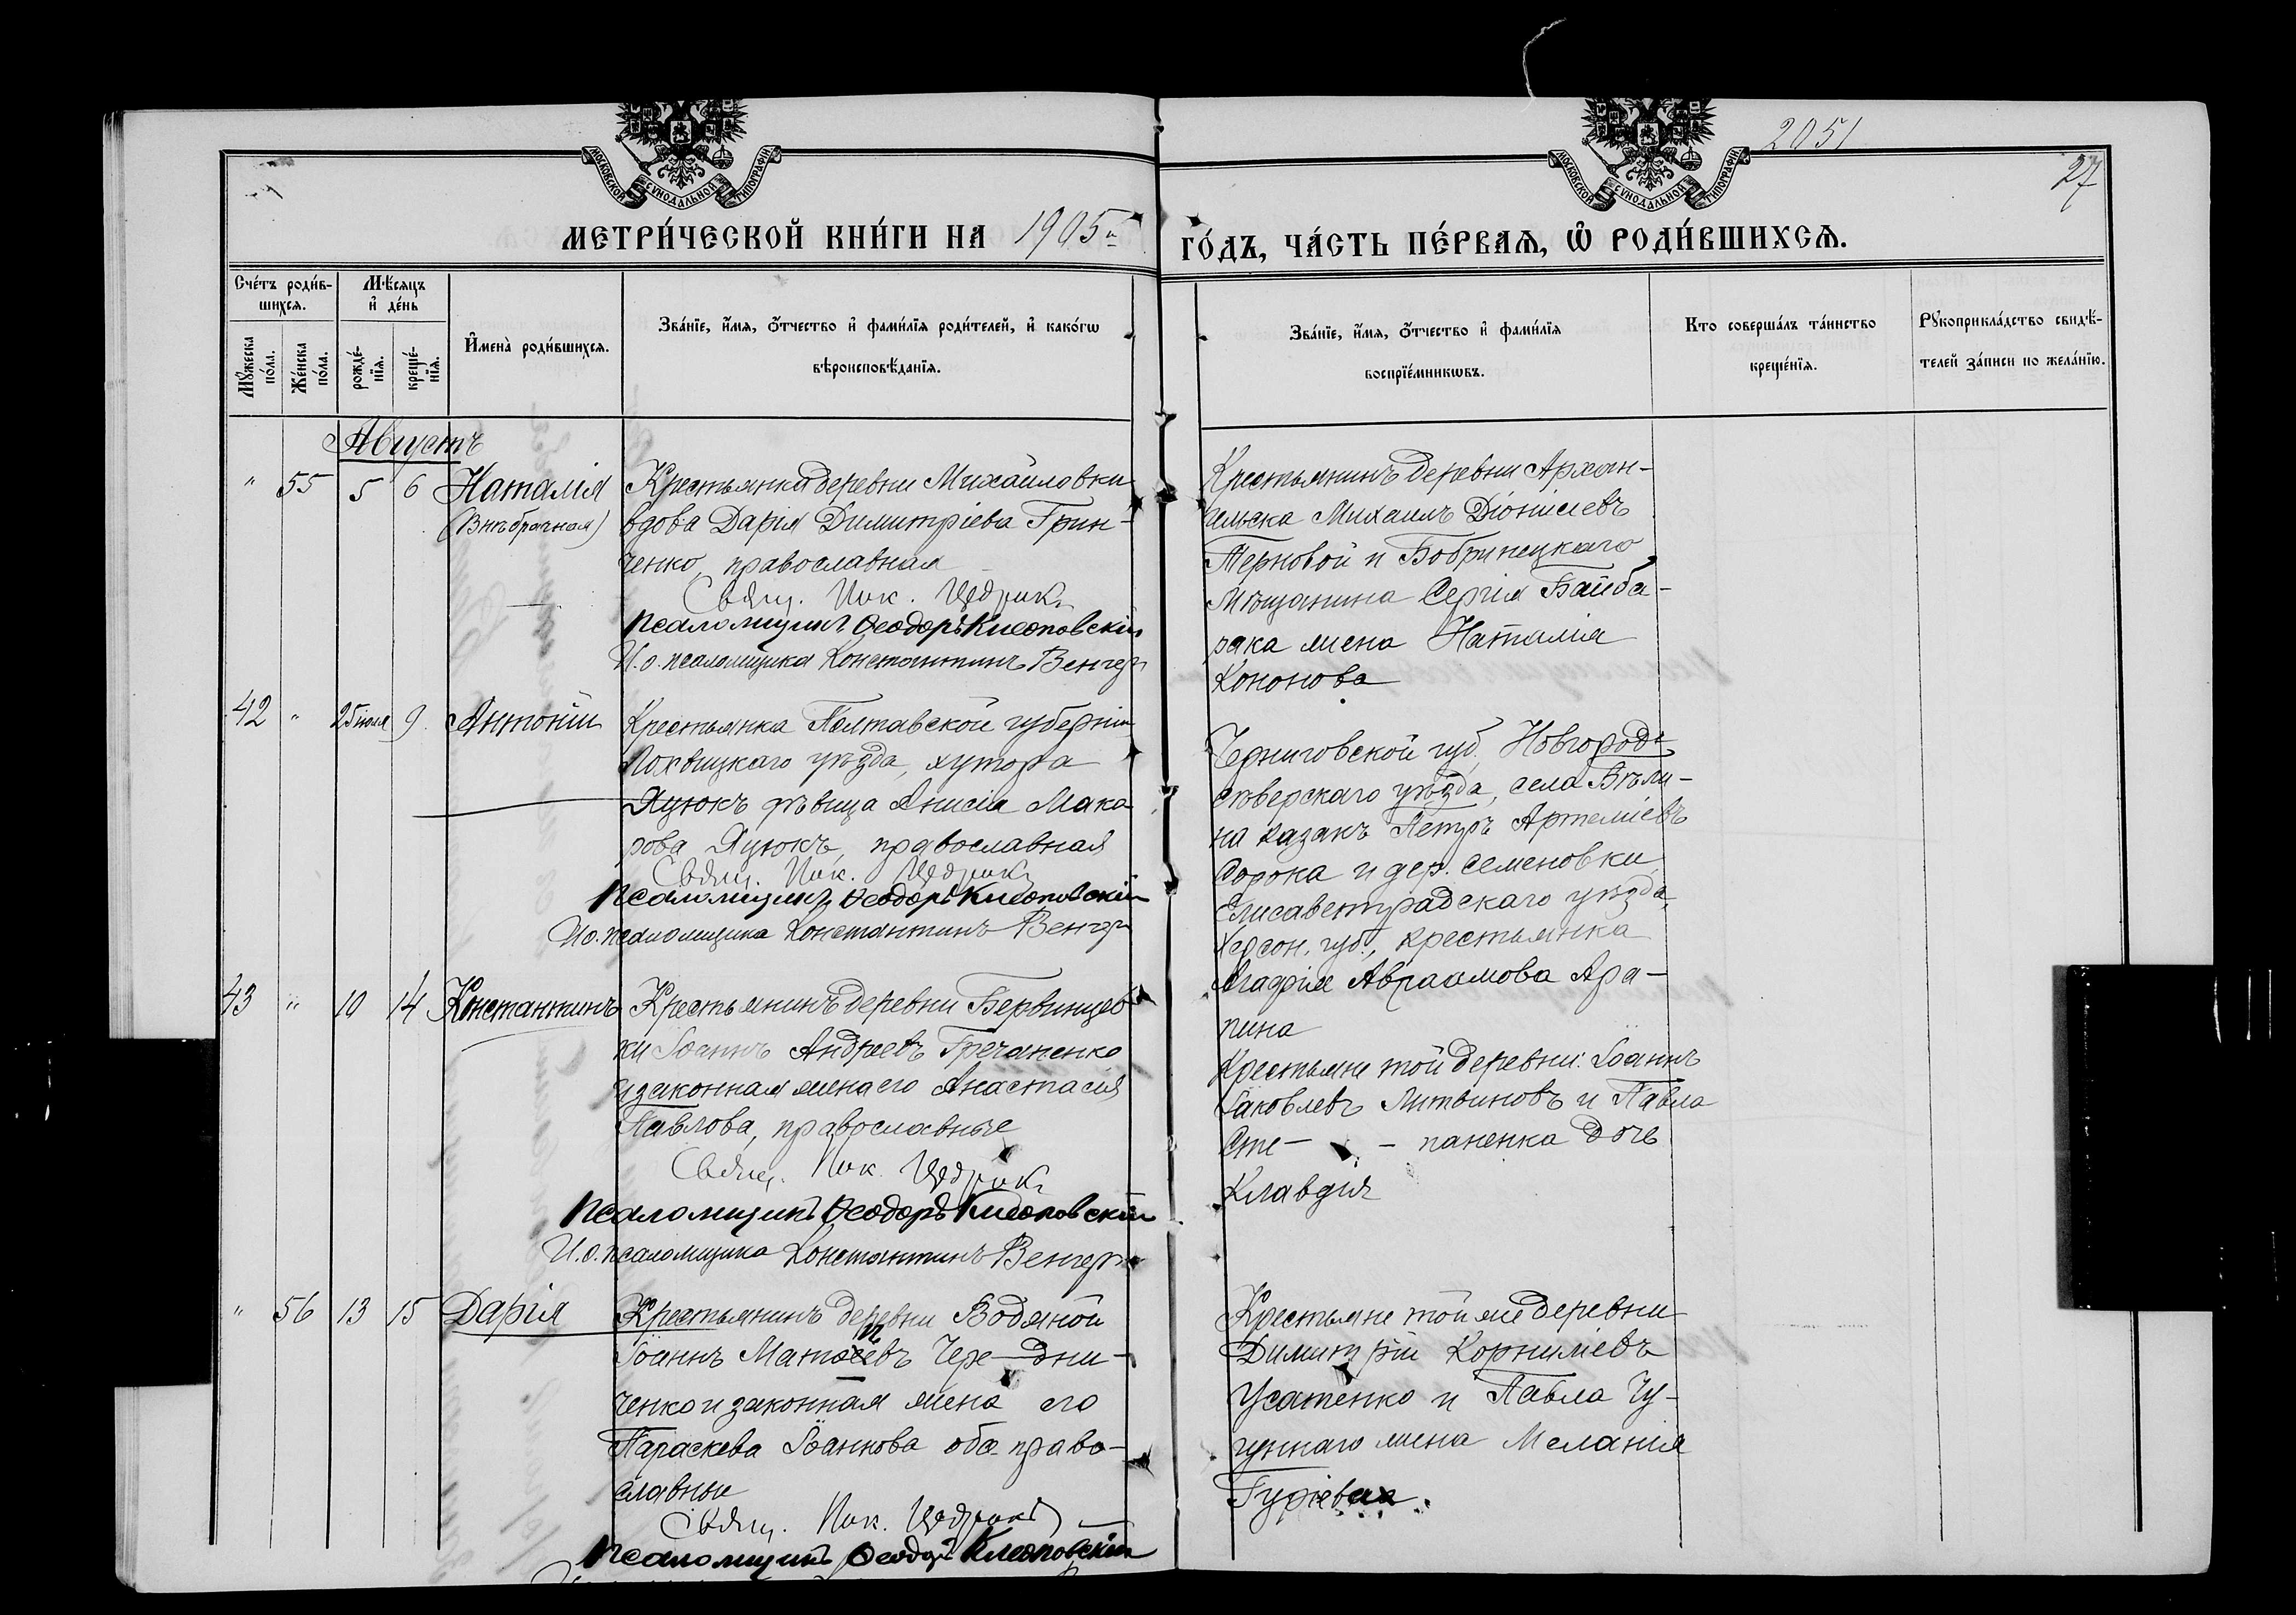 МОСКОВСКОЙ СѴНОДАЛЬНОЙ ТИПОГРАФІИ.
МОСКОВСКОЙ СѴНОДАЛЬНОЙ ТИПОГРАФІИ.
2051
27
МЕТРИ́ЧЕСКОЙ КНИ́ГИ НА 1905й
ГО́ДЪ, ЧА́СТЬ ПЕ́РВАѦ, Ѡ҆ РОДИ́ВШИХСѦ.
Сче́тъ роди́в-
шихсѧ.
Мꙋ́жеска
по́ла.
Же́нска
по́ла.
Мѣ́сѧцъ
и҆ де́нь
рожде́-
нїѧ.
креще́-
нїѧ.
И҆мена̀ роди́вшихсѧ.
Зва́нїе, и҆́мѧ, ѻ҆́тчество и҆ фами́лїѧ роди́телей, и҆ како́гѡ
вѣроисповѣ́данїѧ.
Зва́нїе, и҆́мѧ, ѻ҆́тчество и҆ фами́лїѧ
воспрїе́мникѡвъ.
Кто соверша́лъ та́инство
креще́нїѧ.
Рꙋкоприкла́дство свидѣ́-
телей за́писи по жела́нїю.
Августъ
" 55 5 6 Наталія
(Внѣбрачная)
Крестьянка деревни Михайловки
вдова Дарія Димитріева Грин-
ченко, православная
Свящ. Ник. Щедрикъ
Псаломщикъ Ѳеодоръ Клеоповскій
И.о. псаломщика Константинъ Венгеръ
Крестьянинъ деревни Архан-
гельска Михаилъ Діонисіевъ
Терновой и Бобринецкаго
мѣщанина Сергія Байба-
рака жена Наталія
Кононова
42 " 25 іюля 9 Антоній
Крестьянка Полтавской губерніи
Лохвицкаго уѣзда, хутора
Яцюкъ дѣвица Анисія Мака
рова Яцюкъ, православная
Свящ. Ник. Щедрикъ
Псаломщикъ Ѳеодоръ Клеоповскій
И.о. псаломщика Константинъ Венгеръ
Черниговской губ., Новгородъ
сѣверскаго уѣзда, села
на казакъ Петръ Артеміевъ
Сорока и дер. Семеновки,
Елисаветградскаго уѣзда,
Херсон. губ., крестьянка
Агафія Авраамова Ара-
пина
43 " 10 14 Константинъ
Крестьянинъ деревни Бервинцев
ки Іоаннъ Андреевъ Гречаненко
и законная жена его Анастасія
Павлова, православные
Свящ. Ник. Щедрикъ
Псаломщикъ Ѳеодоръ Клеоповскій
И.о. псаломщика Константинъ Венгеръ
Крестьяне той деревни: Іоаннъ
Іаковлевъ Литвиновъ и Павла
Сте- - паненка дочь
Клавдія
" 56 13 15 Дарія
Крестьянинъ деревни Водяной
Іоаннъ Чере-дни-
ченко и законная жена его
Параскева Іоаннова оба право-
славные
Свящ. Ник. Щедрикъ
Псаломщикъ Ѳеодоръ Клеоповскій
Крестьяне той же деревни
Димитрій Корниліевъ
Усатенко и Павла Чу-
гуннаго жена Меланія
Гуріева.